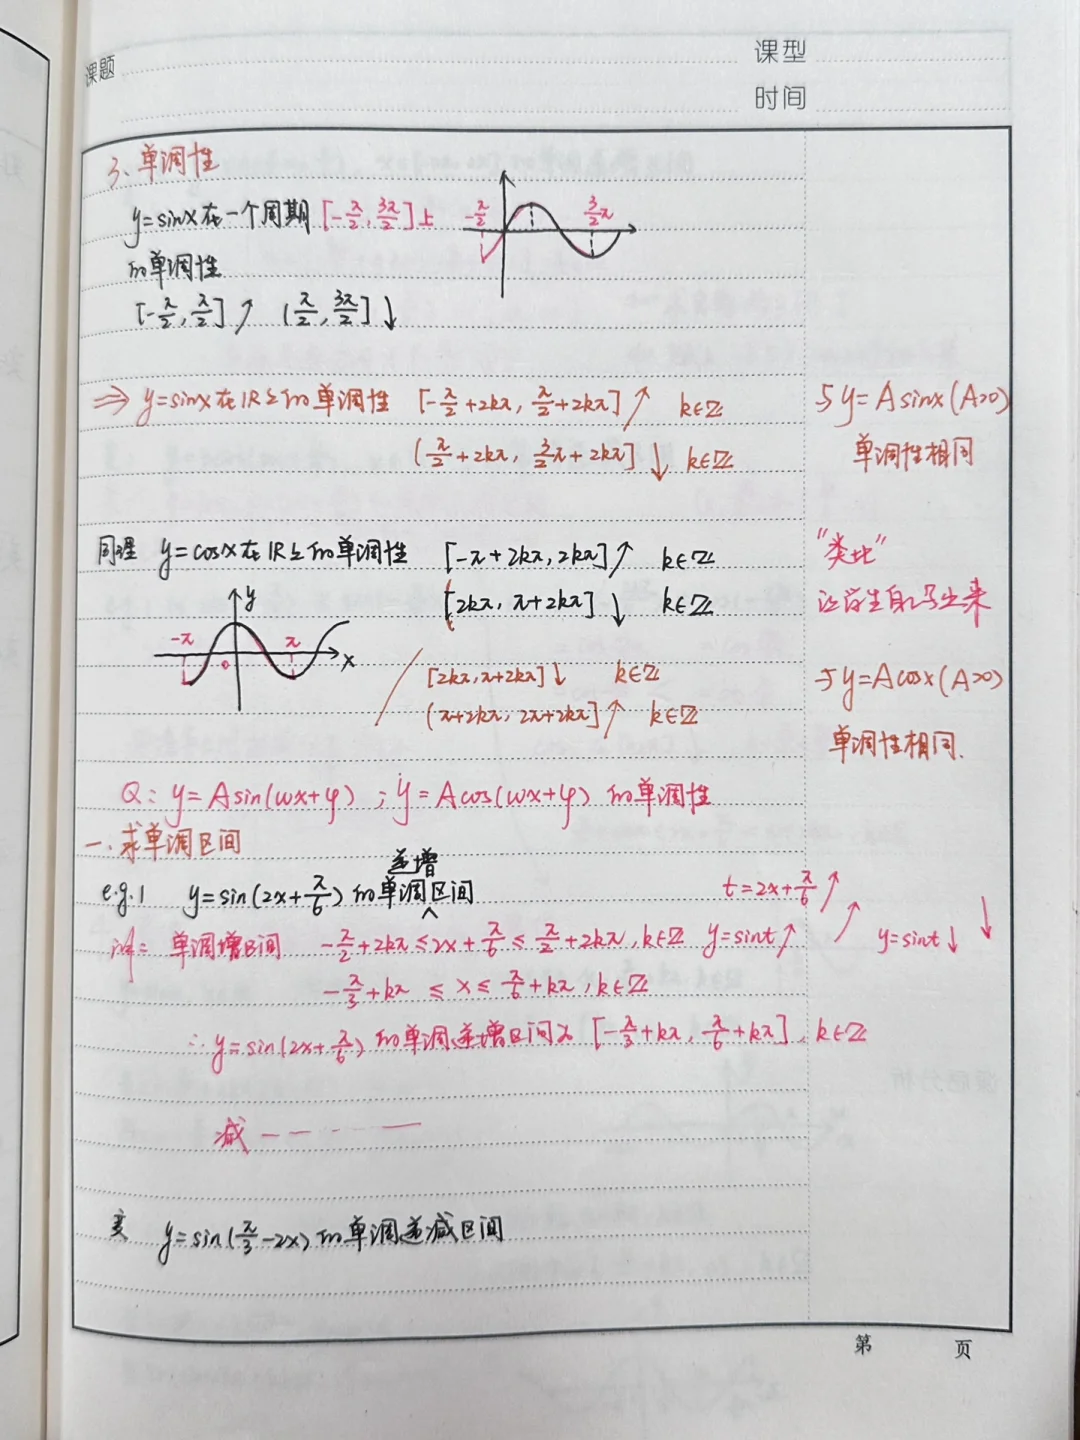 课题
课型
时间
3、单调性
y=sinx在一个周期[-π/2, 3π/2]上
-π/2
3/2π
的单调性
[-π/2, π/2]↗ (π/2, 3π/2]↓
⇒ y=sinx在R上的单调性 [-π/2+2kπ, π/2+2kπ]↗ k∈Z
(π/2+2kπ, 3/2π+2kπ]↓ k∈Z
与y=Asinx(A>0)
单调性相同
同理 y=cosx在R上的单调性 [-π+2kπ, 2kπ]↗ k∈Z
[2kπ, π+2kπ]↓ k∈Z
"类比"
让学生自己写出来
y
-π
0
π
x
[2kπ, π+2kπ]↓ k∈Z
(π+2kπ, 2π+2kπ]↗ k∈Z
与y=Acosx(A>0)
单调性相同.
Q: y=Asin(ωx+φ) ; y=Acos(ωx+φ) 的单调性
一.求单调区间
e.g.1 y=sin(2x+π/6)的单调递增区间
t=2x+π/6↗
解: 单调增区间 -π/2+2kπ≤2x+π/6≤π/2+2kπ, k∈Z y=sint↗ ↗ y=sint↓ ↓
-π/3+kπ≤x≤π/6+kπ, k∈Z
∴y=sin(2x+π/6)的单调递增区间为[-π/3+kπ, π/6+kπ], k∈Z
减
变 y=sin(π/3-2x)的单调递减区间
第 页